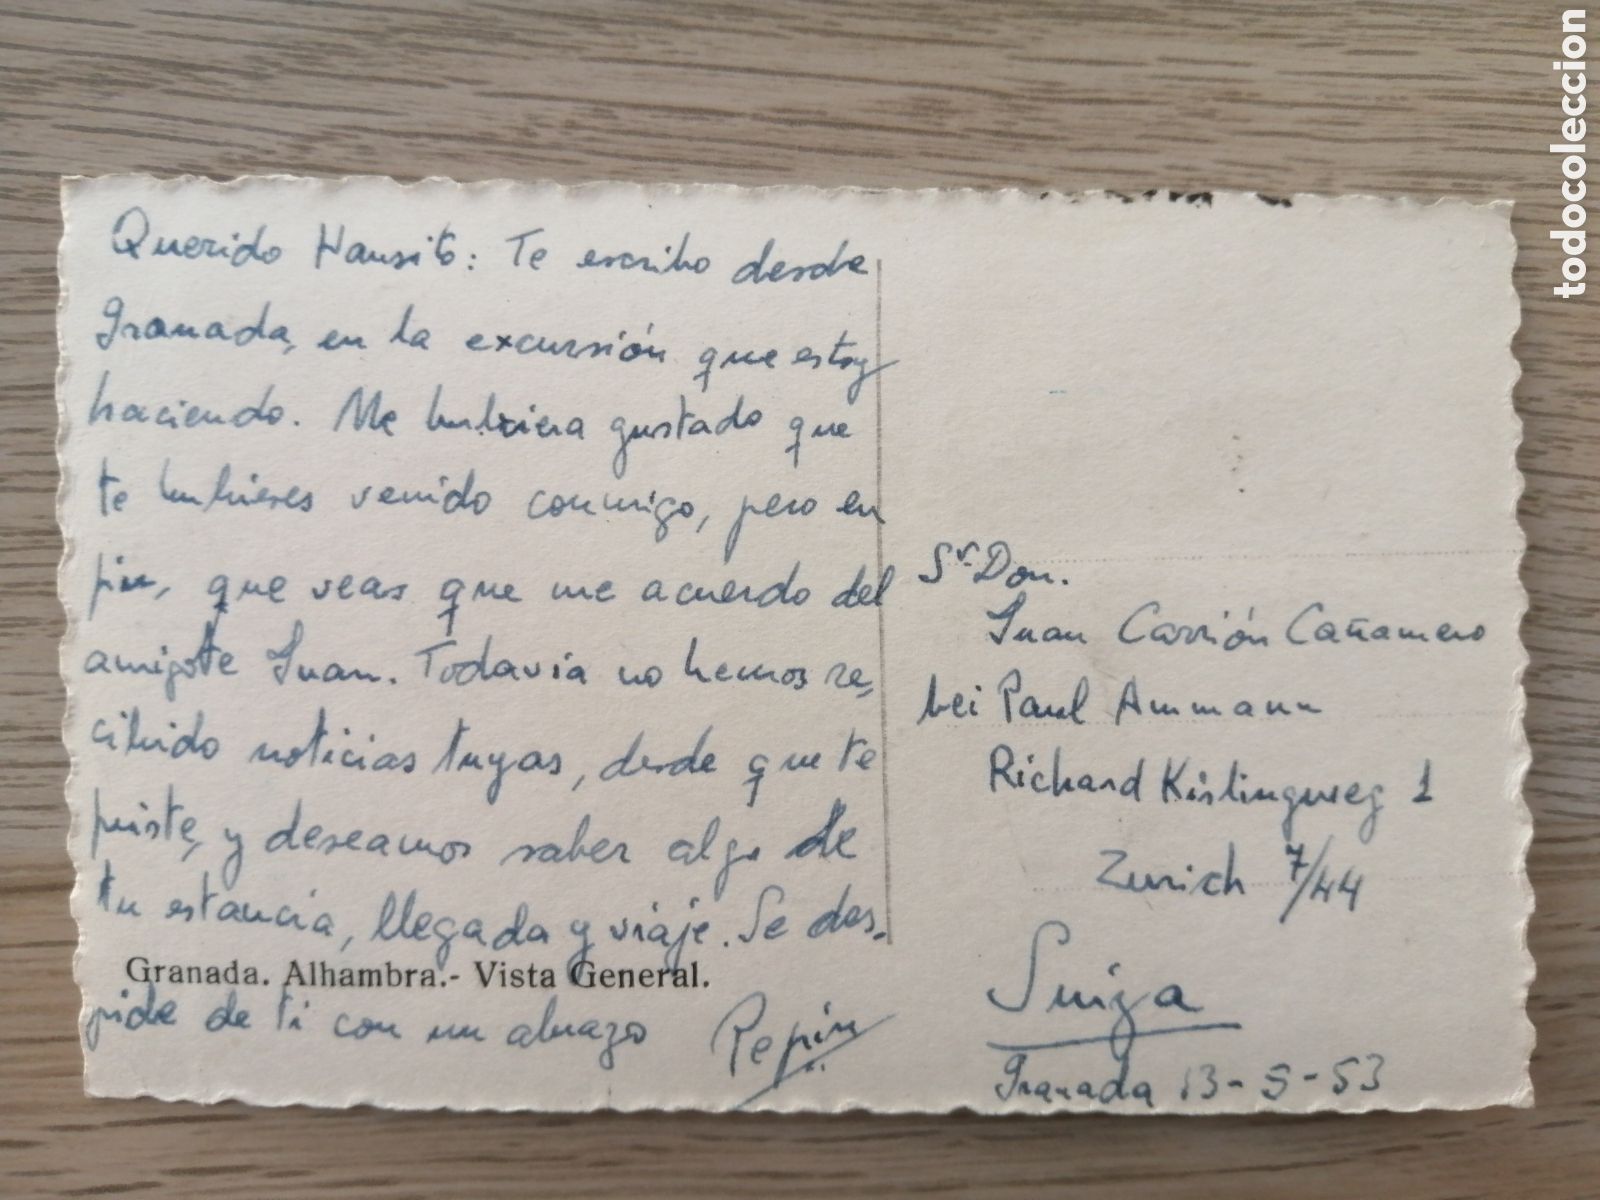 Querido Hansito: Te escribo desde
Granada, en la excursión que estoy
haciendo. Me hubiera gustado que
te hubieses venido conmigo, pero en
fin, que veas que me acuerdo del
amigote Juan. Todavia no hemos re-
cibido noticias tuyas, desde que te
fuiste, y deseamos saber algo de
tu estancia, llegada y viaje. Se des-
Granada. Alhambra.- Vista General.
pide de ti con un abrazo Pepín
Sr Don.
Juan Carrión Cañamero
bei Paul Ammann
Richard Kislingweg 1
Zurich 7/44
Suiza
Granada 13-5-53
todocoleccion